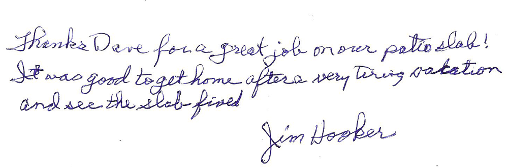 Thanks Dave for a great job on our patio slab!
It was good to get home after a very tiring vakation
and see the slab fixed
Jim Hooker